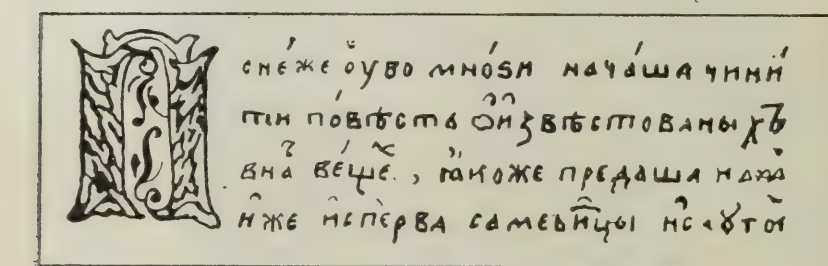 Понеже оубо мноѕи нача́ша чини́
ти по́вѣсть ѡ҆ и҆звѣстованыхъ
в на́ ве́ще, ꙗкоже предаша на
и҆же и҆спе́рва самеви́цы и҆ слꙋгы